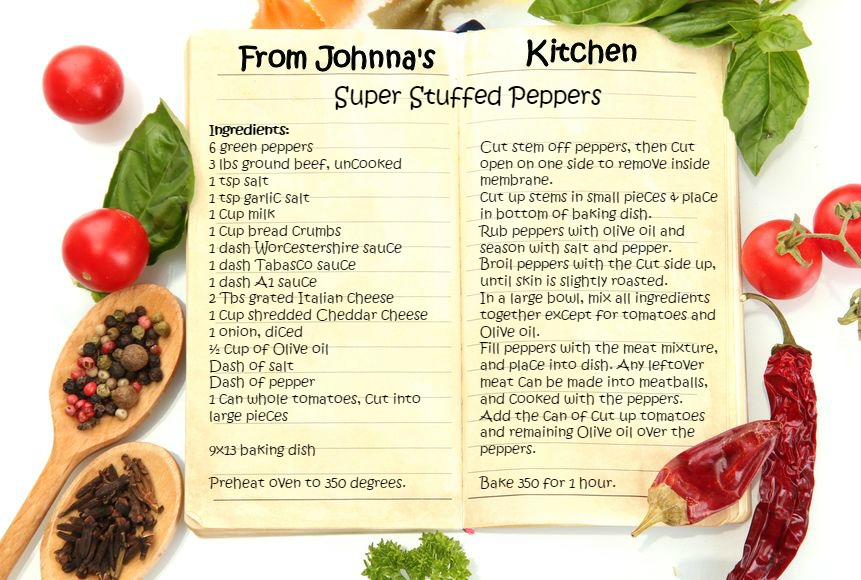 From Johnna's Kitchen
Super Stuffed Peppers
Ingredients:
6 green peppers
3 lbs ground beef, uncooked
1 tsp salt
1 tsp garlic salt
1 cup milk
1 cup bread crumbs
1 dash Worcestershire sauce
1 dash Tabasco sauce
1 dash A1 sauce
2 Tbs grated Italian cheese
1 cup shredded Cheddar cheese
1 onion, diced
½ cup of Olive oil
Dash of salt
Dash of pepper
1 can whole tomatoes, cut into
large pieces
9x13 baking dish
Preheat oven to 350 degrees.
Cut stem off peppers, then cut
open on one side to remove inside
membrane.
Cut up stems in small pieces & place
in bottom of baking dish.
Rub peppers with olive oil and
season with salt and pepper.
Broil peppers with the cut side up,
until skin is slightly roasted.
In a large bowl, mix all ingredients
together except for tomatoes and
Olive oil.
Fill peppers with the meat mixture,
and place into dish. Any leftover
meat can be made into meatballs,
and cooked with the peppers.
Add the can of cut up tomatoes
and remaining Olive oil over the
peppers.
Bake 350 for 1 hour.